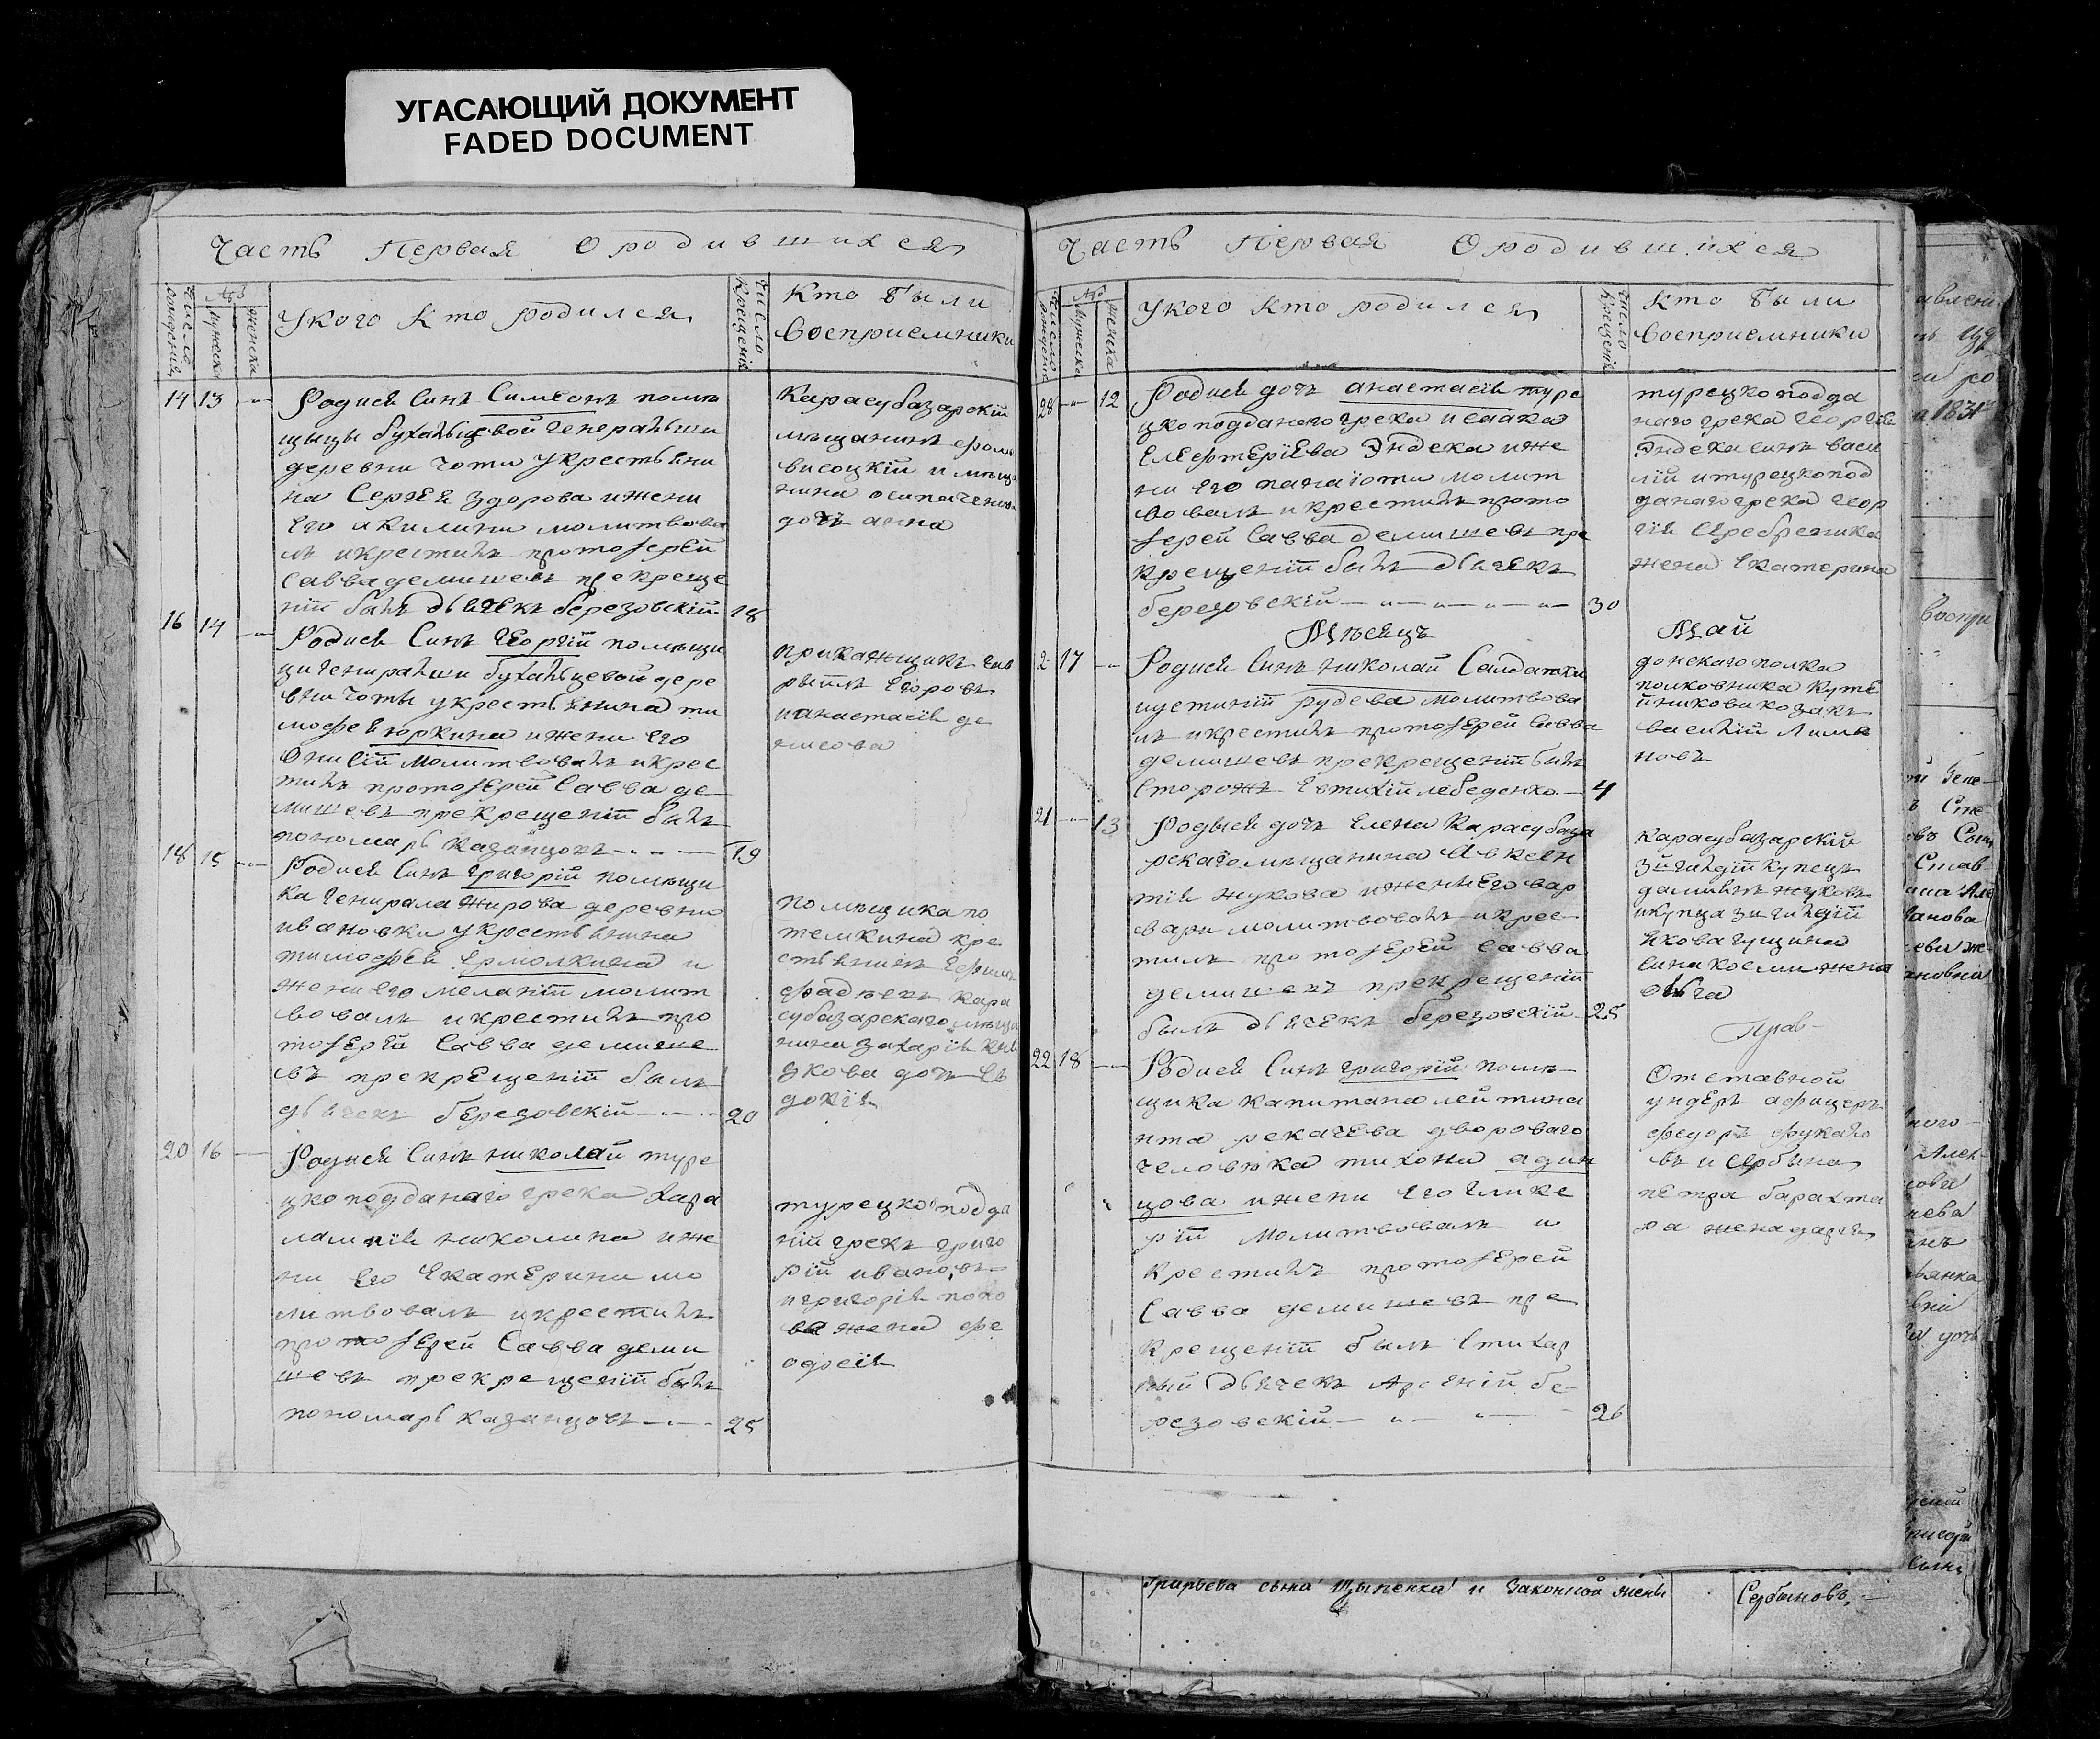 УГАСАЮЩИЙ ДОКУМЕНТ
FADED DOCUMENT
Часть Первая О родившихся
Число рождения
№
мужеска
женска
У кого кто родился
Число крещенія
Кто были
восприемники
14 13
Родися Синъ Симеонъ помѣ
щыцы бухальцевой генеральши
деревни Чоти у крестьяни
на Сергея Здорова и жени
его акилини молитвова
лъ и крестилъ протоіерей
Савва демишевъ прекреще
ніи былъ дьячекъ березовскій 18
Карасубазарскій
мѣщанинъ
висоцкій и мѣща
нина осипа
дочъ анна
16 14
Родися Синъ Георгій помѣщи
ци генеральши бухальцевой дере
вни Чоты у крестьянина ти
мофея юркина и жени его
Онисіи молитвовалъ и крес
тилъ протоіерей Савва де
мишевъ прекрещеніи былъ
пономарь казанцовъ 19
прикажщикъ гав
рыилъ Егоровъ
и анастасія де
18 15
Родися Синъ григорій помѣщи
ка генирала жирова деревни
ивановки у крестьянина
тимофея ермолкина и
жени его меланіи молит
вовалъ и крестилъ про
тоіерей Савва демише
въ прекрещеніи былъ
дьячекъ березовскій 20
помѣщика по
темкина кре
стьянинъ Ефимъ
фадѣевъ кара
субазарскаго мѣща
нина захарія
дочъ Ев
докія
20 16
Родися Синъ николай туре
цкоподданаго грека хара
лампія николина и же
ни его Екатерини мо
литвовалъ и крестилъ
протоіерей Савва деми
шевъ прекрещеніи былъ
пономарь казанцовъ 25
турецко подда
ній грекъ григо
рій ивановъ
и григорія попо
ва жена фе
одосія
Часть Первая О родившихся
Число рождения
№
мужеска
женска
У кого кто родился
Число крещенія
Кто были
восприемники
28 12
Родися дочъ анастасія туре
цкоподданого грека исаака
Елефтеріева Эндека и же
ни его панаіоти молит
вовалъ и крестилъ прото
іерей Савва демишевъ пре
крещеніи былъ дьячекъ
березовскій 30
турецкоподда
наго грека георгія
Эндека синъ васи
лій и турецкопод
данаго грека геор
гія Серебреника
жена Екатерина
Мѣсяцъ Май
2 17
Родися Синъ николай Салдатки
устиніи рудева молитвова
лъ и крестилъ протоіерей Савва
демишевъ прекрещеніи былъ
Сторожъ Евтихій лебеденко 4
донскаго полка
полковника куте
йникова козакъ
василій
новъ
21 13
Родыся дочъ Елена Карасубаза
рскаго мѣщанина Авксен
тія жукова и жени его вар
вари молитвовалъ и крес
тилъ протоіерей Савва
демишевъ прекрещеніи
былъ дьячекъ березовскій 25
карасубазарскій
3й гилдіи купецъ
жуковъ
и купца 3й гилдіи
Якова гущина
сина косми жена
Ольга
22 18
Родися Синъ григорій помѣ
щика капитана лейтина
нта рекачева дворового
человѣка тихона адин
цова и жени его Глике
ріи молитвовалъ и
крестилъ протоіерей
Савва демишевъ пре
крещеніи былъ Стихар
ный дьячекъ Арсеній бе
резовскій 26
Отставной
ундеръ афицеръ
федоръ
въ и
петра барахта
ра жена даря
1831
воспри
Грирьева сына Щыпенка и Законной жены
Сербиновъ,